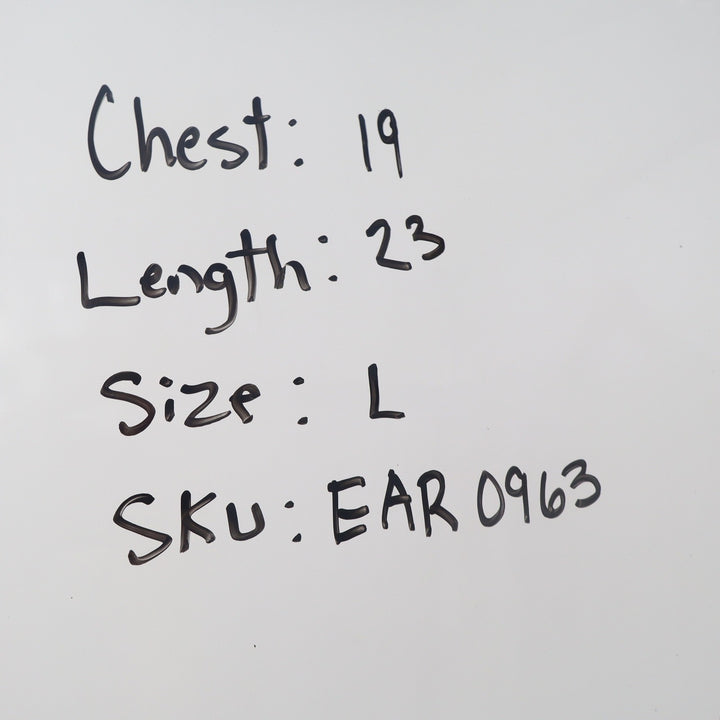 Chest: 19
Length: 23
Size: L
SKU: EAR 0963